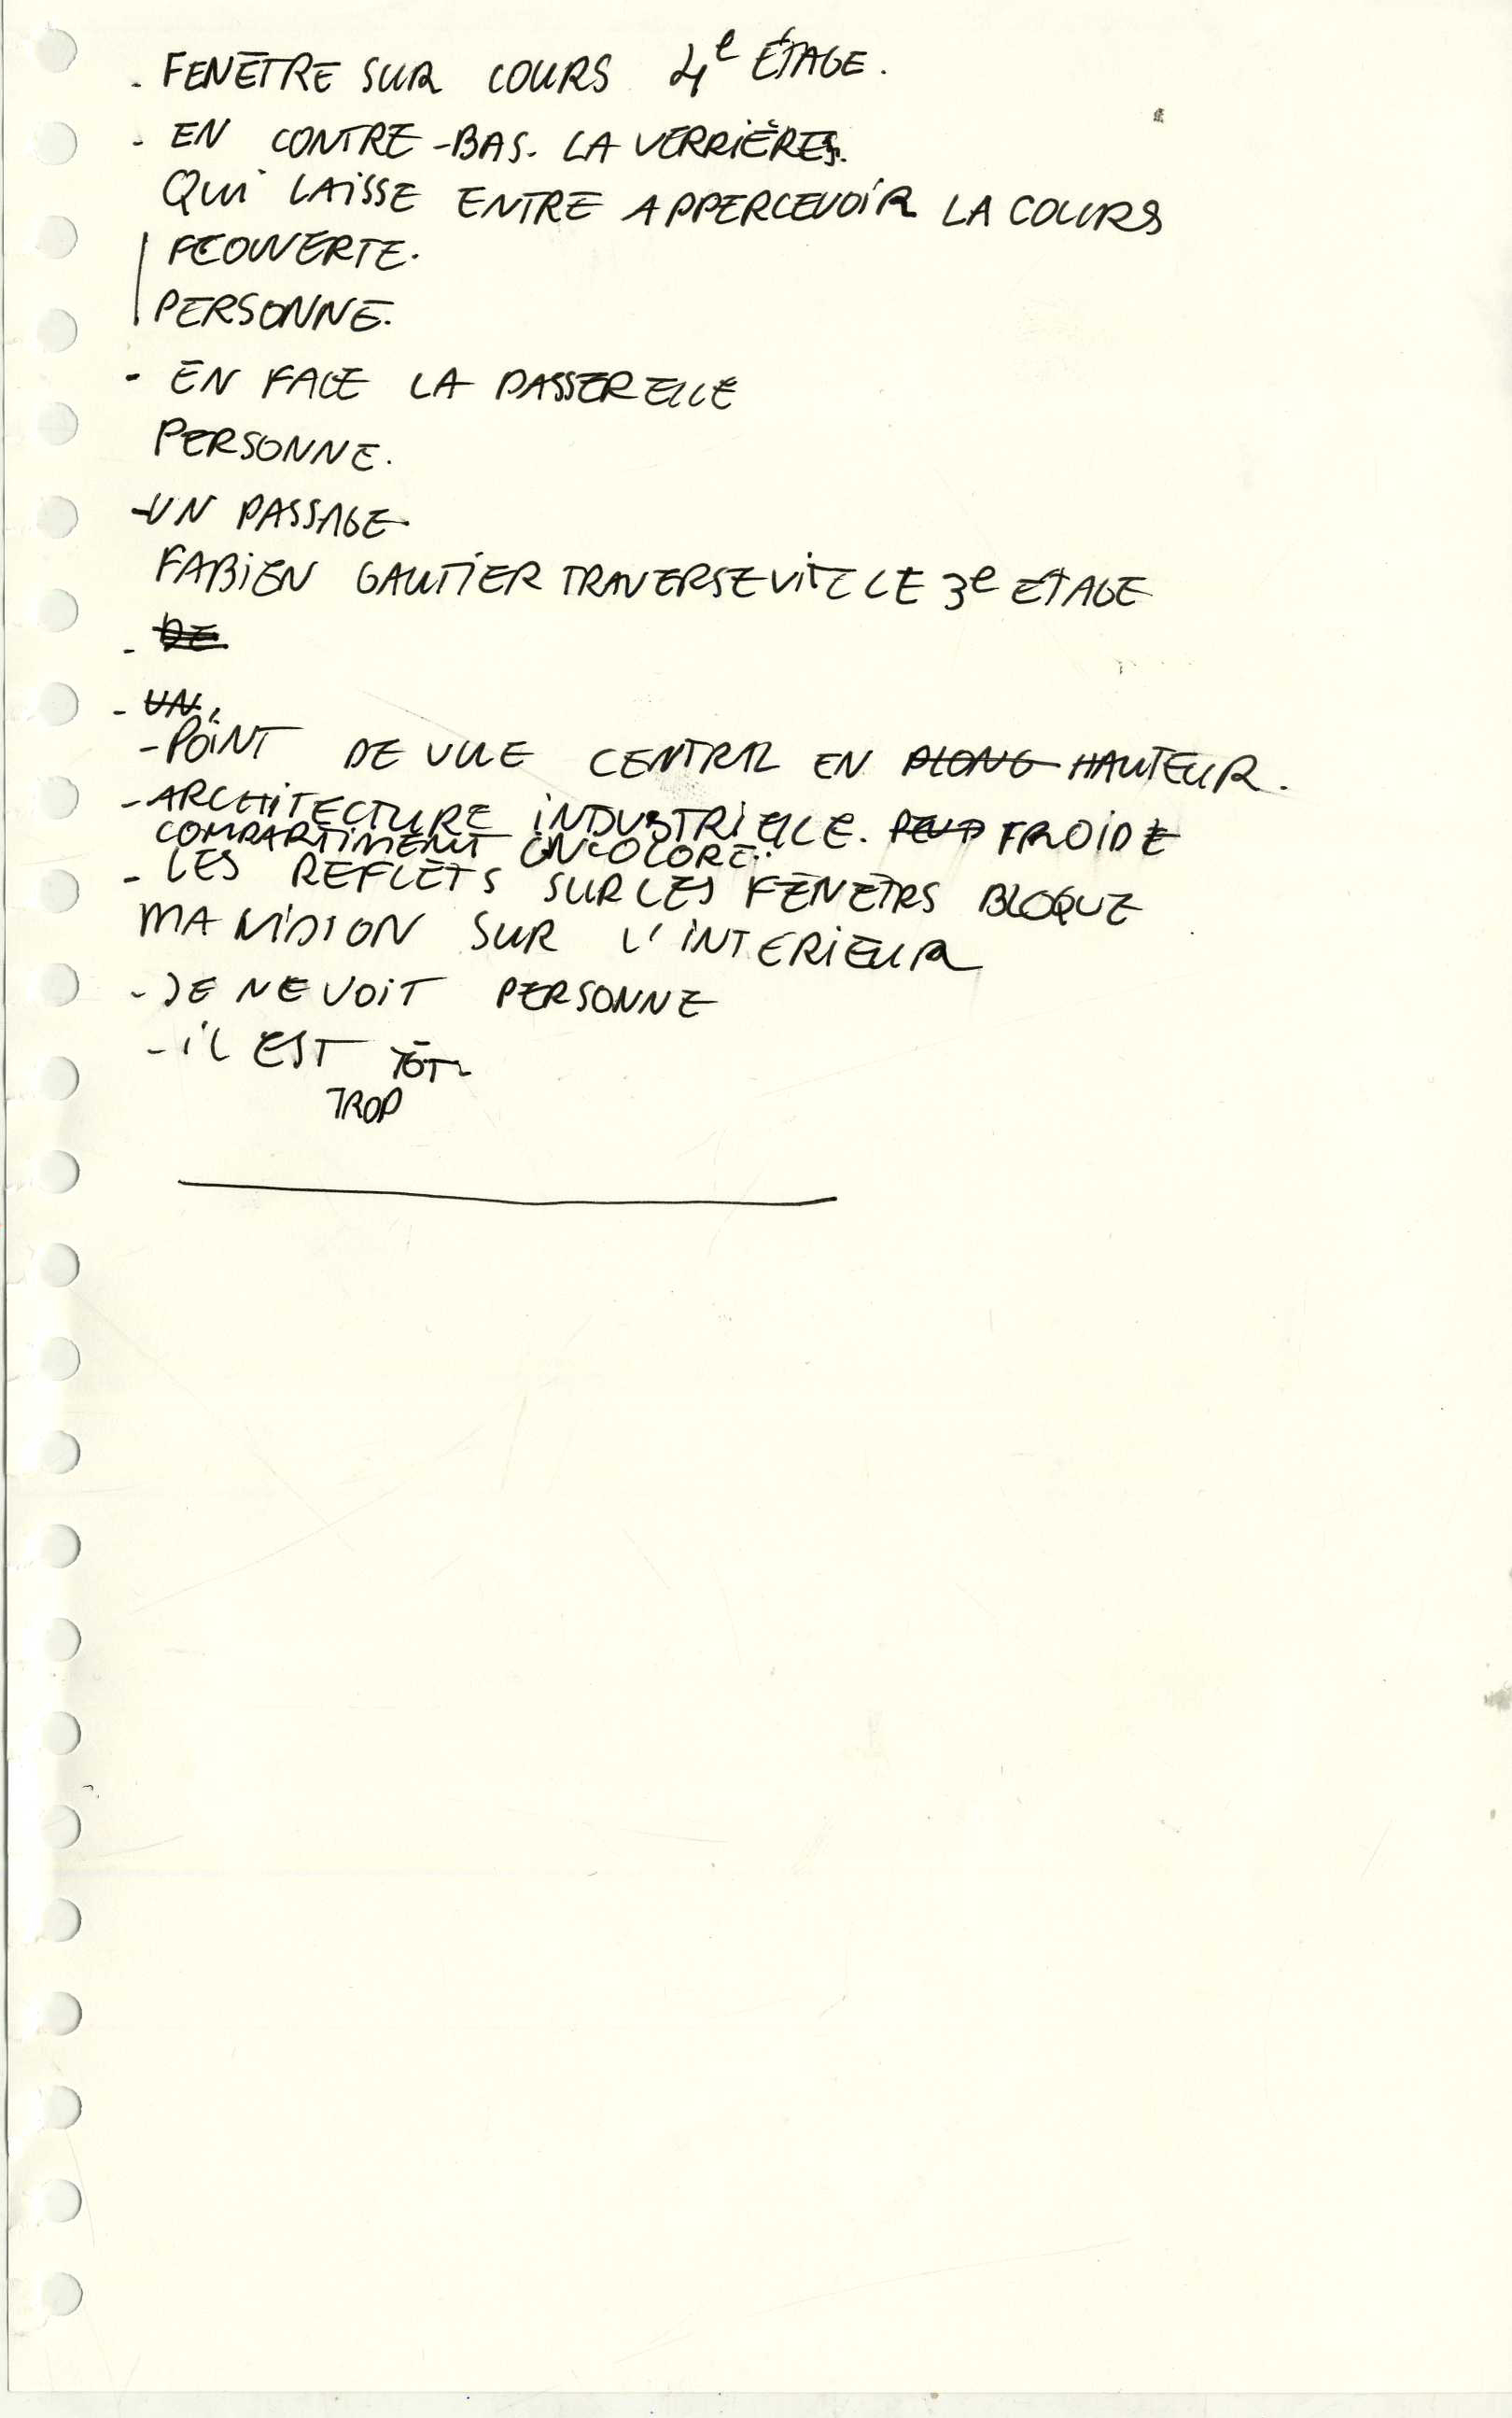 . FENÊTRE SUR COURS 4e ÉTAGE.
- EN CONTRE-BAS. LA VERRIÈRES.
QUI LAISSE ENTRE APPERCEVOIR LA COURS
PERSONNE.
- EN FACE LA PASSERELLE
PERSONNE.
- UN PASSAGE
FABIEN GAUTIER TRAVERSE VITE LE 3e ETAGE
- DE
- UN.
- POINT DE VUE CENTRAL EN PLONG HAUTEUR.
- ARCHITECTURE INDUSTRIELLE. FROIDE
COMPARTIMENT
- LES REFLETS SUR LES FENÊTRS BLOQUE
MA VISION SUR L'INTERIEUR
- JE NE VOIT PERSONNE
- iL EST TÔT
TROP